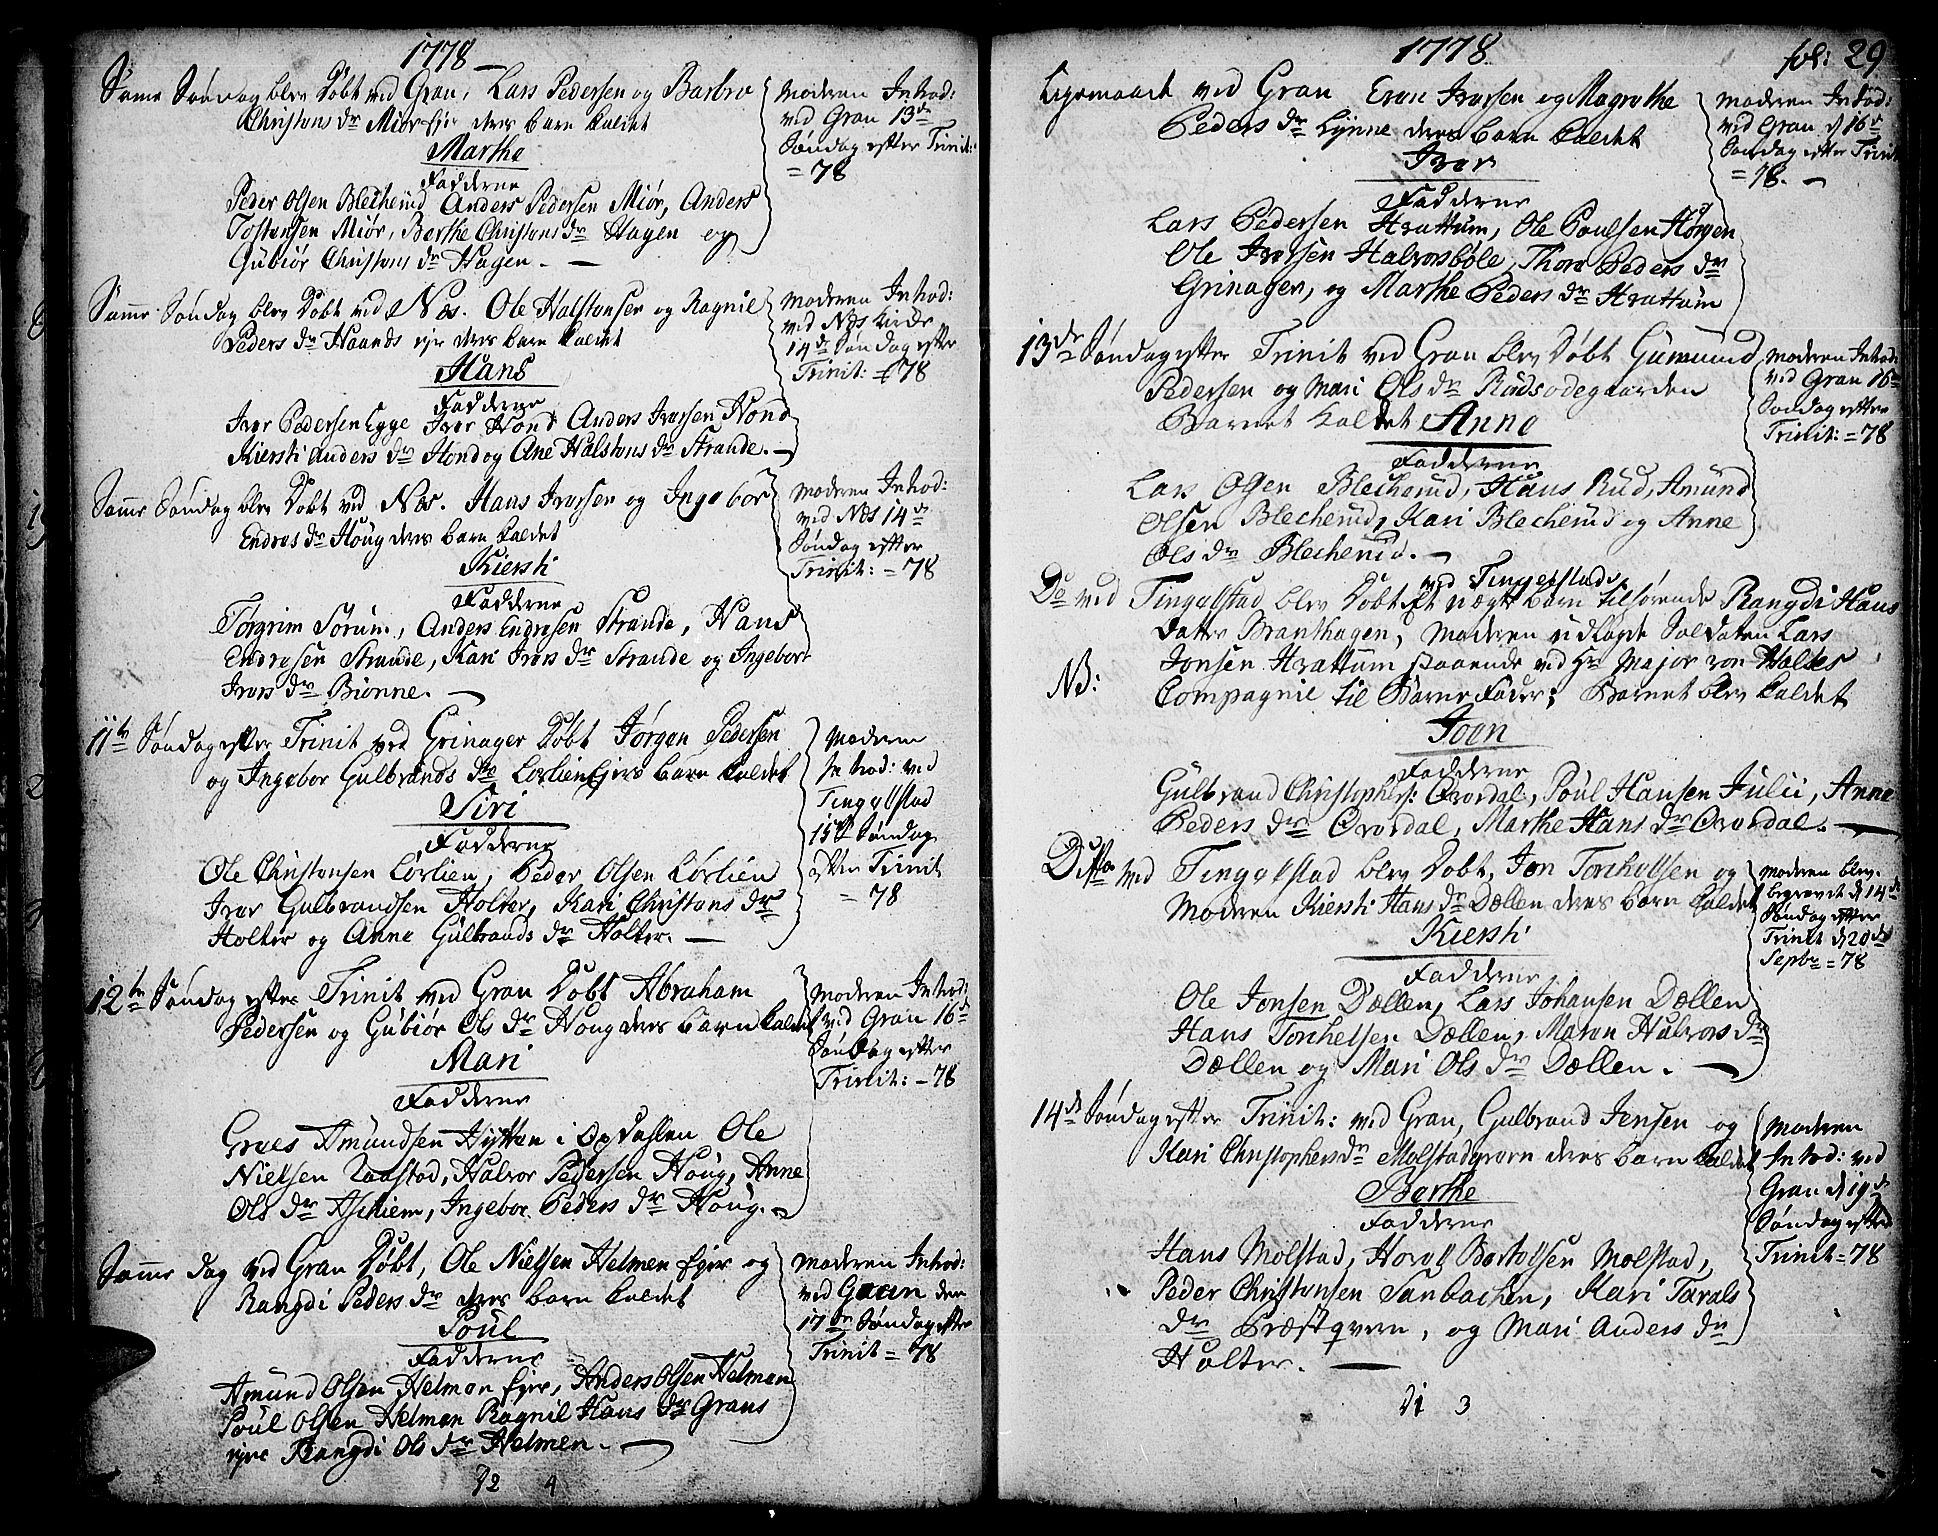 1778
Same Søndag blev døbt ved Gran, Lars Pedersen og Barbro
Christens dr Miør eje deres barn kaldet
Marthe
Fadderne
Peder Olsen Blecherud Anders Pedersen Miør, Anders
Tostensen Miør, Berthe Christens dr Hagen og
Gubiør Christens dr Hagen.
Moderen Introd:
ved Gran 13de
Søndag efter Trinit:
= 78
Samme Søndag blev døbt ved Næs. Ole Halstensen og Ragnil
Peders dr Haands eje deres barn kaldet
Hans
Fadderne
Iver Pedersen Egge Iver Hond Anders Iversen Hond
Kiersti Anders dr Hond og Ane Halstens dr Strande.
Moderen Introd:
ved Næs Kirke
14de Søndag efter
Trinit: = 78
Samme Søndag blev døbt ved Næs. Hans Iversen og Ingebor
Endres dr Houg deres barn kaldet
Kiersti
Fadderne
Torgrim Sørum, Anders Endresen Strande, Hans
Endresen Strande, Kari Ivers dr Strande og Ingebor
Ivers dr Bionne.
Moderen Introd:
ved Næs 14de
Søndag efter
Trinit: = 78
11te Søndag efter Trinit ved Grinager døbt Jørgen Pedersen
og Ingebor Gulbrands dr Lørlien Ejers barn kaldet
Siri
Fadderne
Ole Christensen Lørlien, Peder Olsen Lørlien
Iver Gulbrandsen Holter, Kari Christens dr
Holter og Anne Gulbrands dr Holter.
Moderen
Introd: ved
Tingelstad
15de Søndag
efter Trinit
= 78
12te Søndag efter Trinit ved Gran døbt Abraham
Pedersen og Gubiør Ols dr Houg deres barn kaldet
Mari
Fadderne
Graes Amundsen Hytten i Opdahlen Ole
Nielsen Raastad, Halvor Pedersen Houg, Anne
Ols dr Aschiem, Ingebor Peders dr Houg.
Moderen Introd:
ved Gran 16de
Søndag efter
Trinit: = 78
Samme dag ved Gran døbt, Ole Nielsen Helmen Ejer og
Rangdi Peders dr deres barn kaldet
Poul
Fadderne
Amund Olsen Helmen Ejer, Anders Olsen Helmen
Poul Olsen Helmen Ragnil Hans dr Grans
eje Rangdi Ols dr Helmen.
Moderen Introd:
ved Gran den
17de Søndag efter
Trinit = 78
72 4
1778.
fol: 29
Ligemaade ved Gran Even Iversen og Magrethe
Peders dr Lynne deres barn kaldet
Iver
Fadderne
Lars Pedersen Hvattum, Ole Poulsen Horgen
Ole Iversen Halvorsbøle, Thore Peders dr
Grinager, og Marthe Peders dr Hvattum
Moderen Introd:
ved Gran d 16de
Søndag efter Trinit
= 78.
13de Søndag efter Trinit ved Gran blev døbt Gumund
Pedersen og Mari Ols dr Rudsødegaarden
Barnet kaldet Anne
Fadderne
Lars Olsen Blecherud, Hans Rud, Amund
Olsen Blecherud, Kari Blecherud og Anne
Ols dr Blecherud.
Moderen Introd:
ved Gran 16de
Søndag efter
Trinit: = 78
ved Tingelstad
Do ved Tingelstad blev døbt Et uægte barn tilhørende Rangdi Hans
datter Branthagen, Moderen udlagde Soldaten Lars
NB:
Jonsen Hvattum staaende ved Hr Major von Waltes
Compagnie til Barne Fader; Barnet blev kaldet
Joen
Fadderne
Gulbrand Christophers: Qvordal, Poul Hansen Julii, Anne
Peders dr Qvordal, Marthe Hans dr Qvordal.
Ditto ved Tingelstad blev døbt, Jon Torchelsen og
Moderen Kiersti Hans dr Dællen deres barn kaldet
Kiersti
Fadderne
Ole Jonsen Dællen, Lars Johansen Dællen
Hans Torchelsen Dællen, Maren Halvors dr
Dællen og Mari Ols dr Dællen.
Moderen blev
begravet d 14de
Søndag efter
Trinit d 20de
Septbr = 78
14de Søndag efter Trinit: ved Gran, Gulbrand Jensen og
Kari Christophers dr Molstadqvern deres barn kaldet
Berthe
Fadderne
Hans Molstad, Hovell Bertelsen Molstad,
Peder Christensen Sanbachen, Kari Tarals
dr Præstqvern, og Mari Anders dr
Holter.
Moderen
Introd: ved
Gran d 19de
Søndag efter
Trinit = 78
di 3